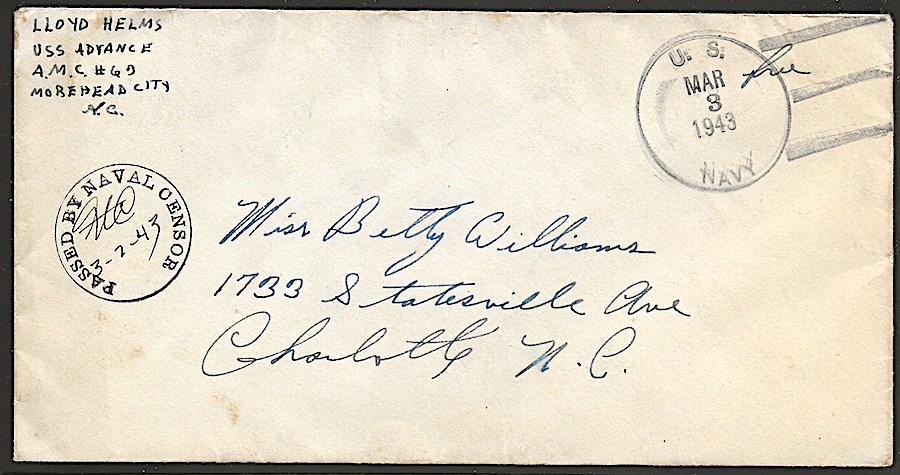 LLOYD HELMS
USS ADVANCE
A.M.C. #63
MOREHEAD CITY
N.C.
U. S.
MAR
3
1943
NAVY
Free
PASSED BY NAVAL CENSOR
3-2-43
Miss Betty Williams
1733 Statesville Ave
Charlotte N.C.